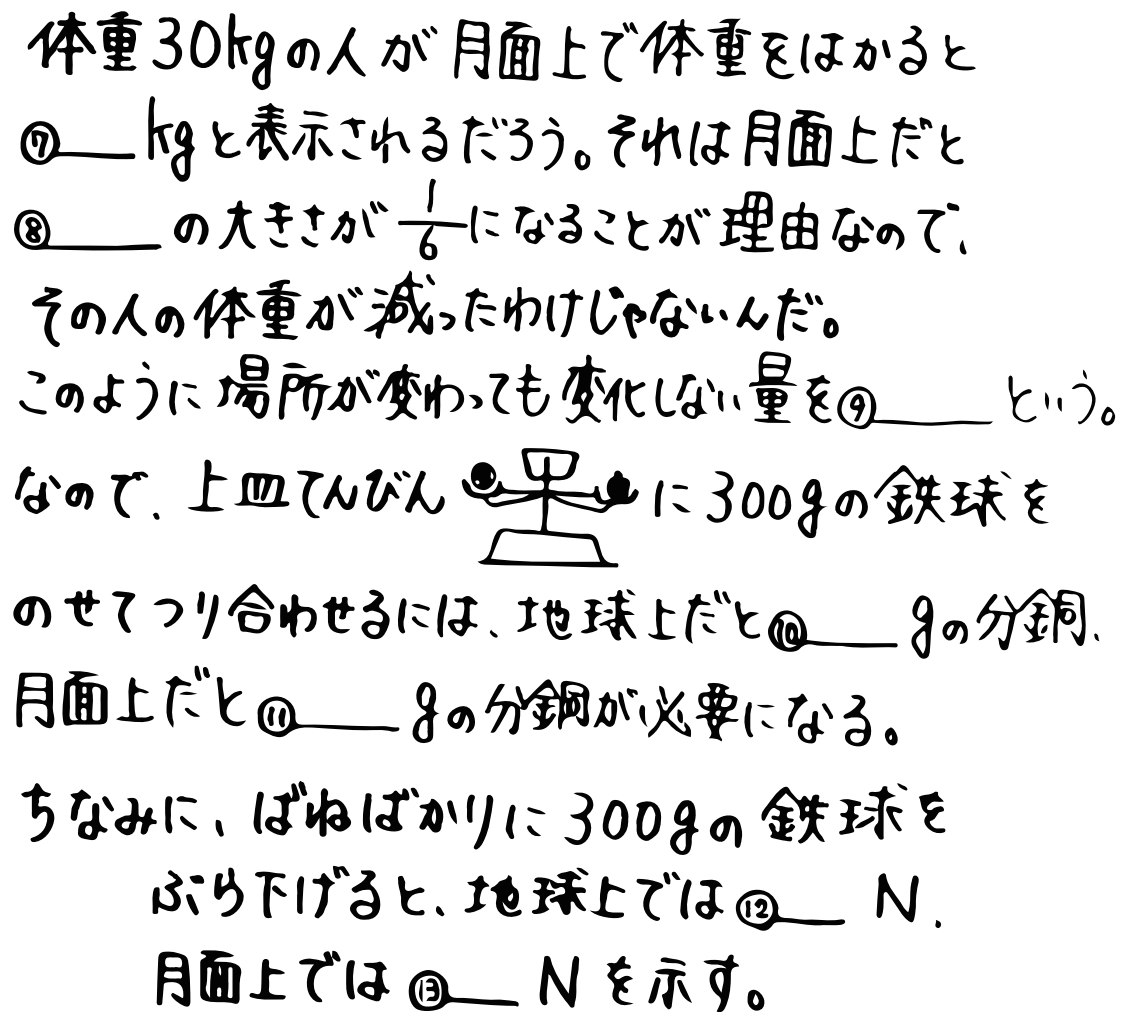 体重30kgの人が月面上で体重をはかると
⑦___kgと表示されるだろう。それは月面上だと
⑧___の大きさが1/6になることが理由なので、
その人の体重が減ったわけじゃないんだ。
このように場所が変わっても変化しない量を⑨___という。
なので、上皿てんびんに300gの鉄球を
のせてつり合わせるには、地球上だと⑩___gの分銅、
月面上だと⑪___gの分銅が必要になる。
ちなみに、ばねばかりに300gの鉄球を
ぶら下げると、地球上では⑫___N、
月面上では⑬___Nを示す。